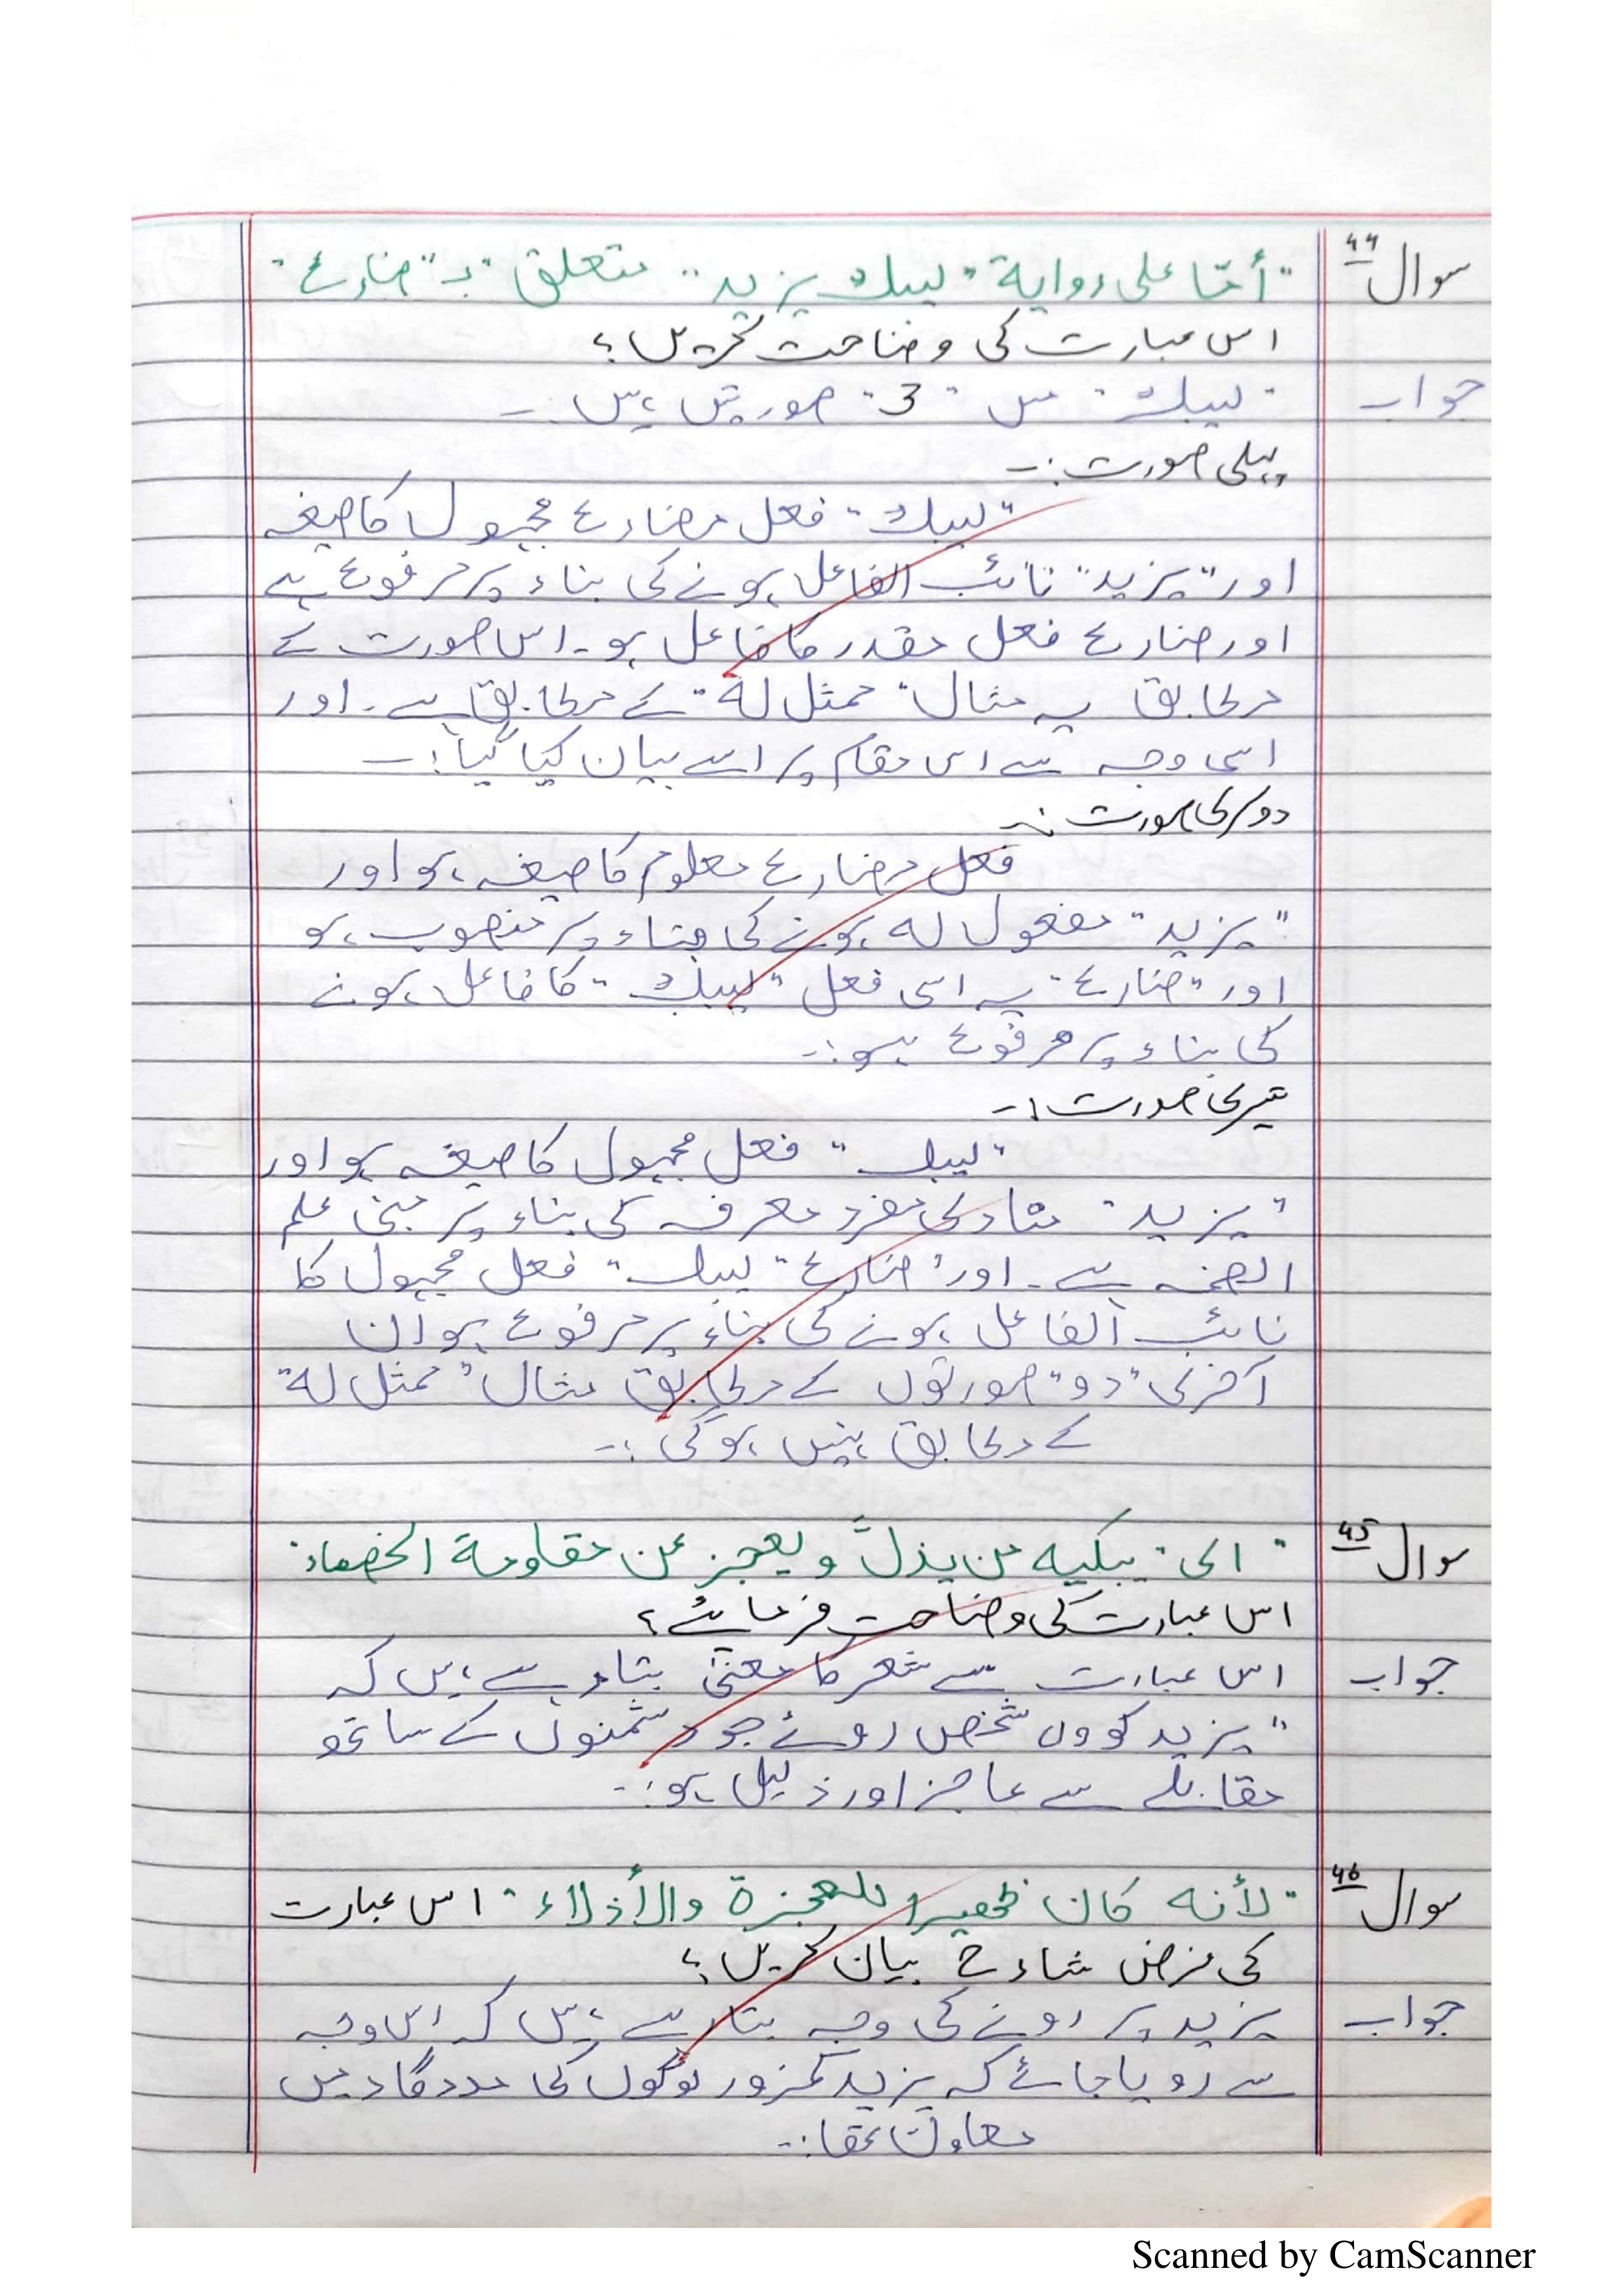 سوال ۴۴ "أمّا على رواية "ليبك يزيد" متعلق "بہ" ضارع"
اس عبارت کی وضاحت کریں؟
جواب "لیبک" میں "3" صورتیں ہیں:۔
پہلی صورت:۔
"لیبک" فعل مضارع مجہول کا صیغہ
اور "یزید" نائب الفاعل ہونے کی بناء پر مرفوع ہے
اور ضارع فعل مقدر کا فاعل ہو۔ اس صورت کے
مطابق یہ مثال "ممثل لہ" کے مطابق ہے۔ اور
اسی وجہ سے اس مقام پر اسے بیان کیا گیا:۔
دوسری صورت:۔
فعل مضارع معلوم کا صیغہ ہو اور
"یزید" مفعول لہ ہونے کی بناء پر منصوب ہو
اور "ضارع" یہ اسی فعل "لیبک" کا فاعل ہونے
کی بناء پر مرفوع ہو:۔
تیسری صورت:۔
"لیبک" فعل مجہول کا صیغہ ہو اور
"یزید" منادی مفرد معرفہ کی بناء پر مبنی علم
الضمہ ہے۔ اور "ضارع" لیبک" فعل مجہول کا
نائب الفاعل ہونے کی بناء پر مرفوع ہو ان
آخری "دو" صورتوں کے مطابق مثال "ممثل لہ"
کے مطابق نہیں ہوگی:۔
سوال ۴۵ "ای" یبکیه من یذلّ و یعجز عن مقاومة الخصماء"
اس عبارت کی وضاحت فرمائے؟
جواب اس عبارت سے شعر کا معنیٰ بتا رہے ہیں کہ
"یزید کو وہ شخص روئے جو دشمنوں کے ساتھ
مقابلے سے عاجز اور ذلیل ہو:۔
سوال ۴۶ "لأنه كان ظهيرا للعجزة والأذلاء" اس عبارت
کی غرض شارح بیان کریں؟
جواب یزید پر رونے کی وجہ بتا رہے ہیں کہ اس وجہ
سے رویا جائے کہ یزید کمزور لوگوں کی مددگار میں
معاون تھا:۔
Scanned by CamScanner